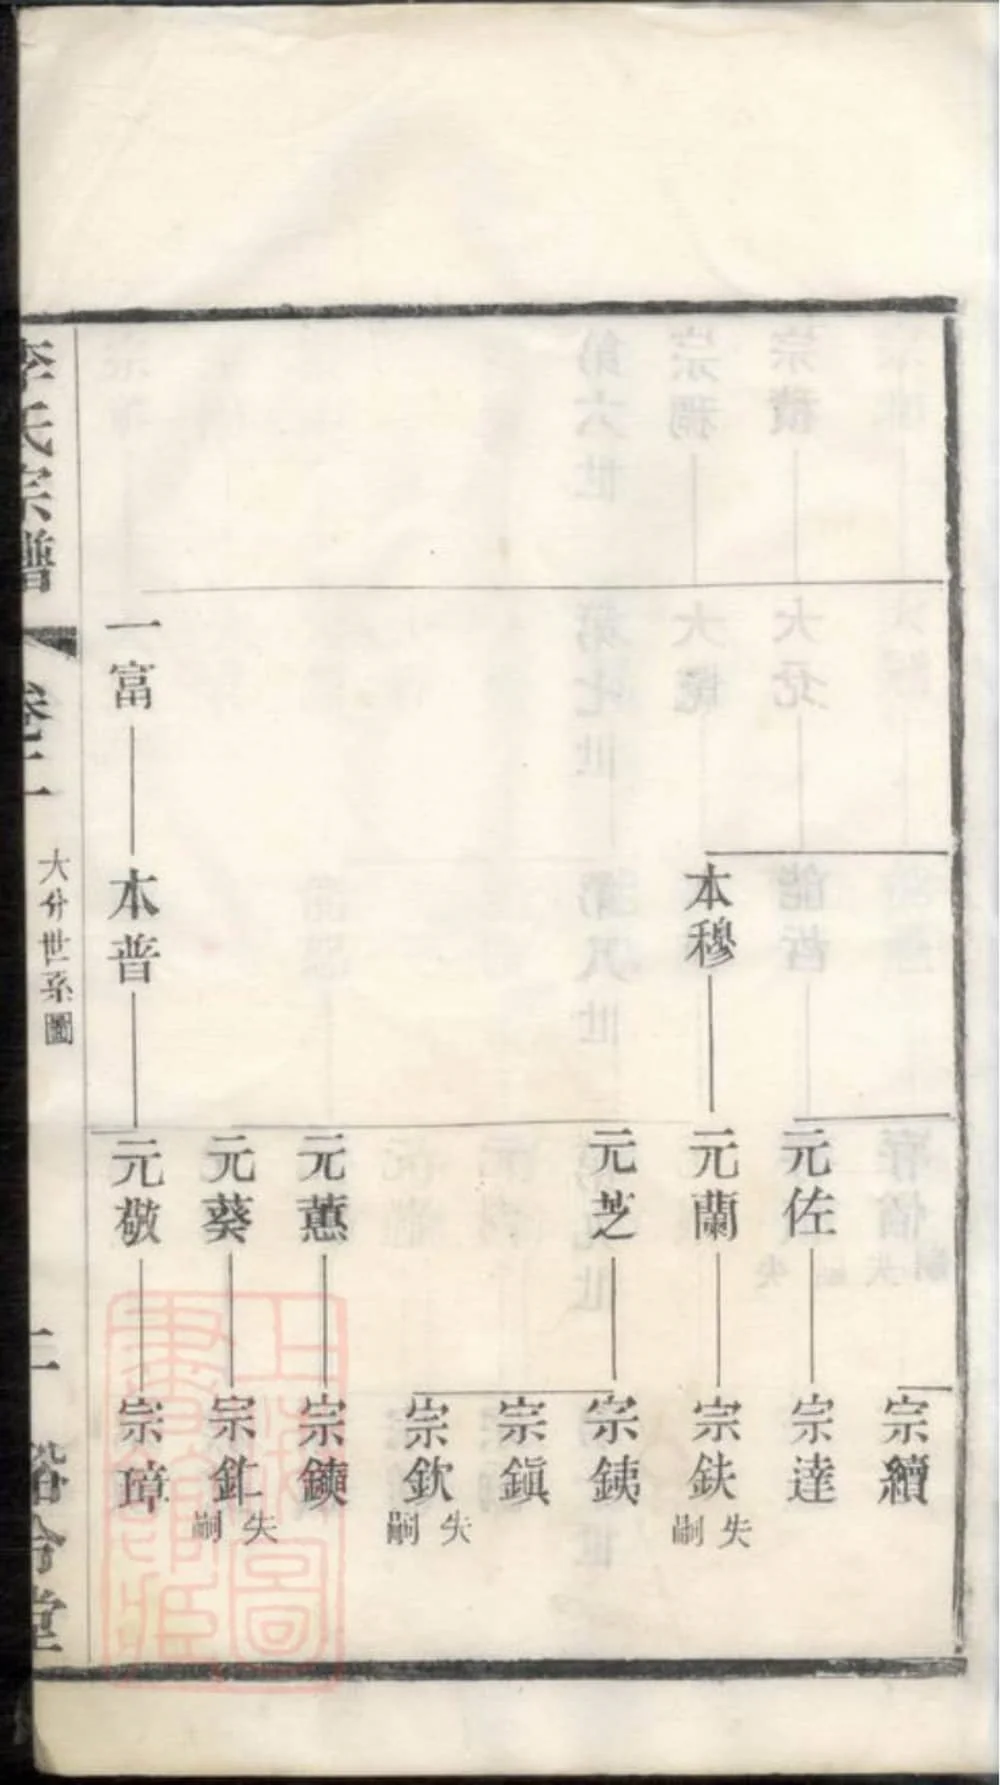 宗續
元佐
宗達
本穆
元蘭
宗鈇
失嗣
元芝
宗銕
宗鎮
宗欽
失嗣
元蕙
宗鐭
元葵
宗鉯
失嗣
一富
本普
元敬
宗璋
李氏宗譜
卷二
大分世系圖
二
上海圖書館藏